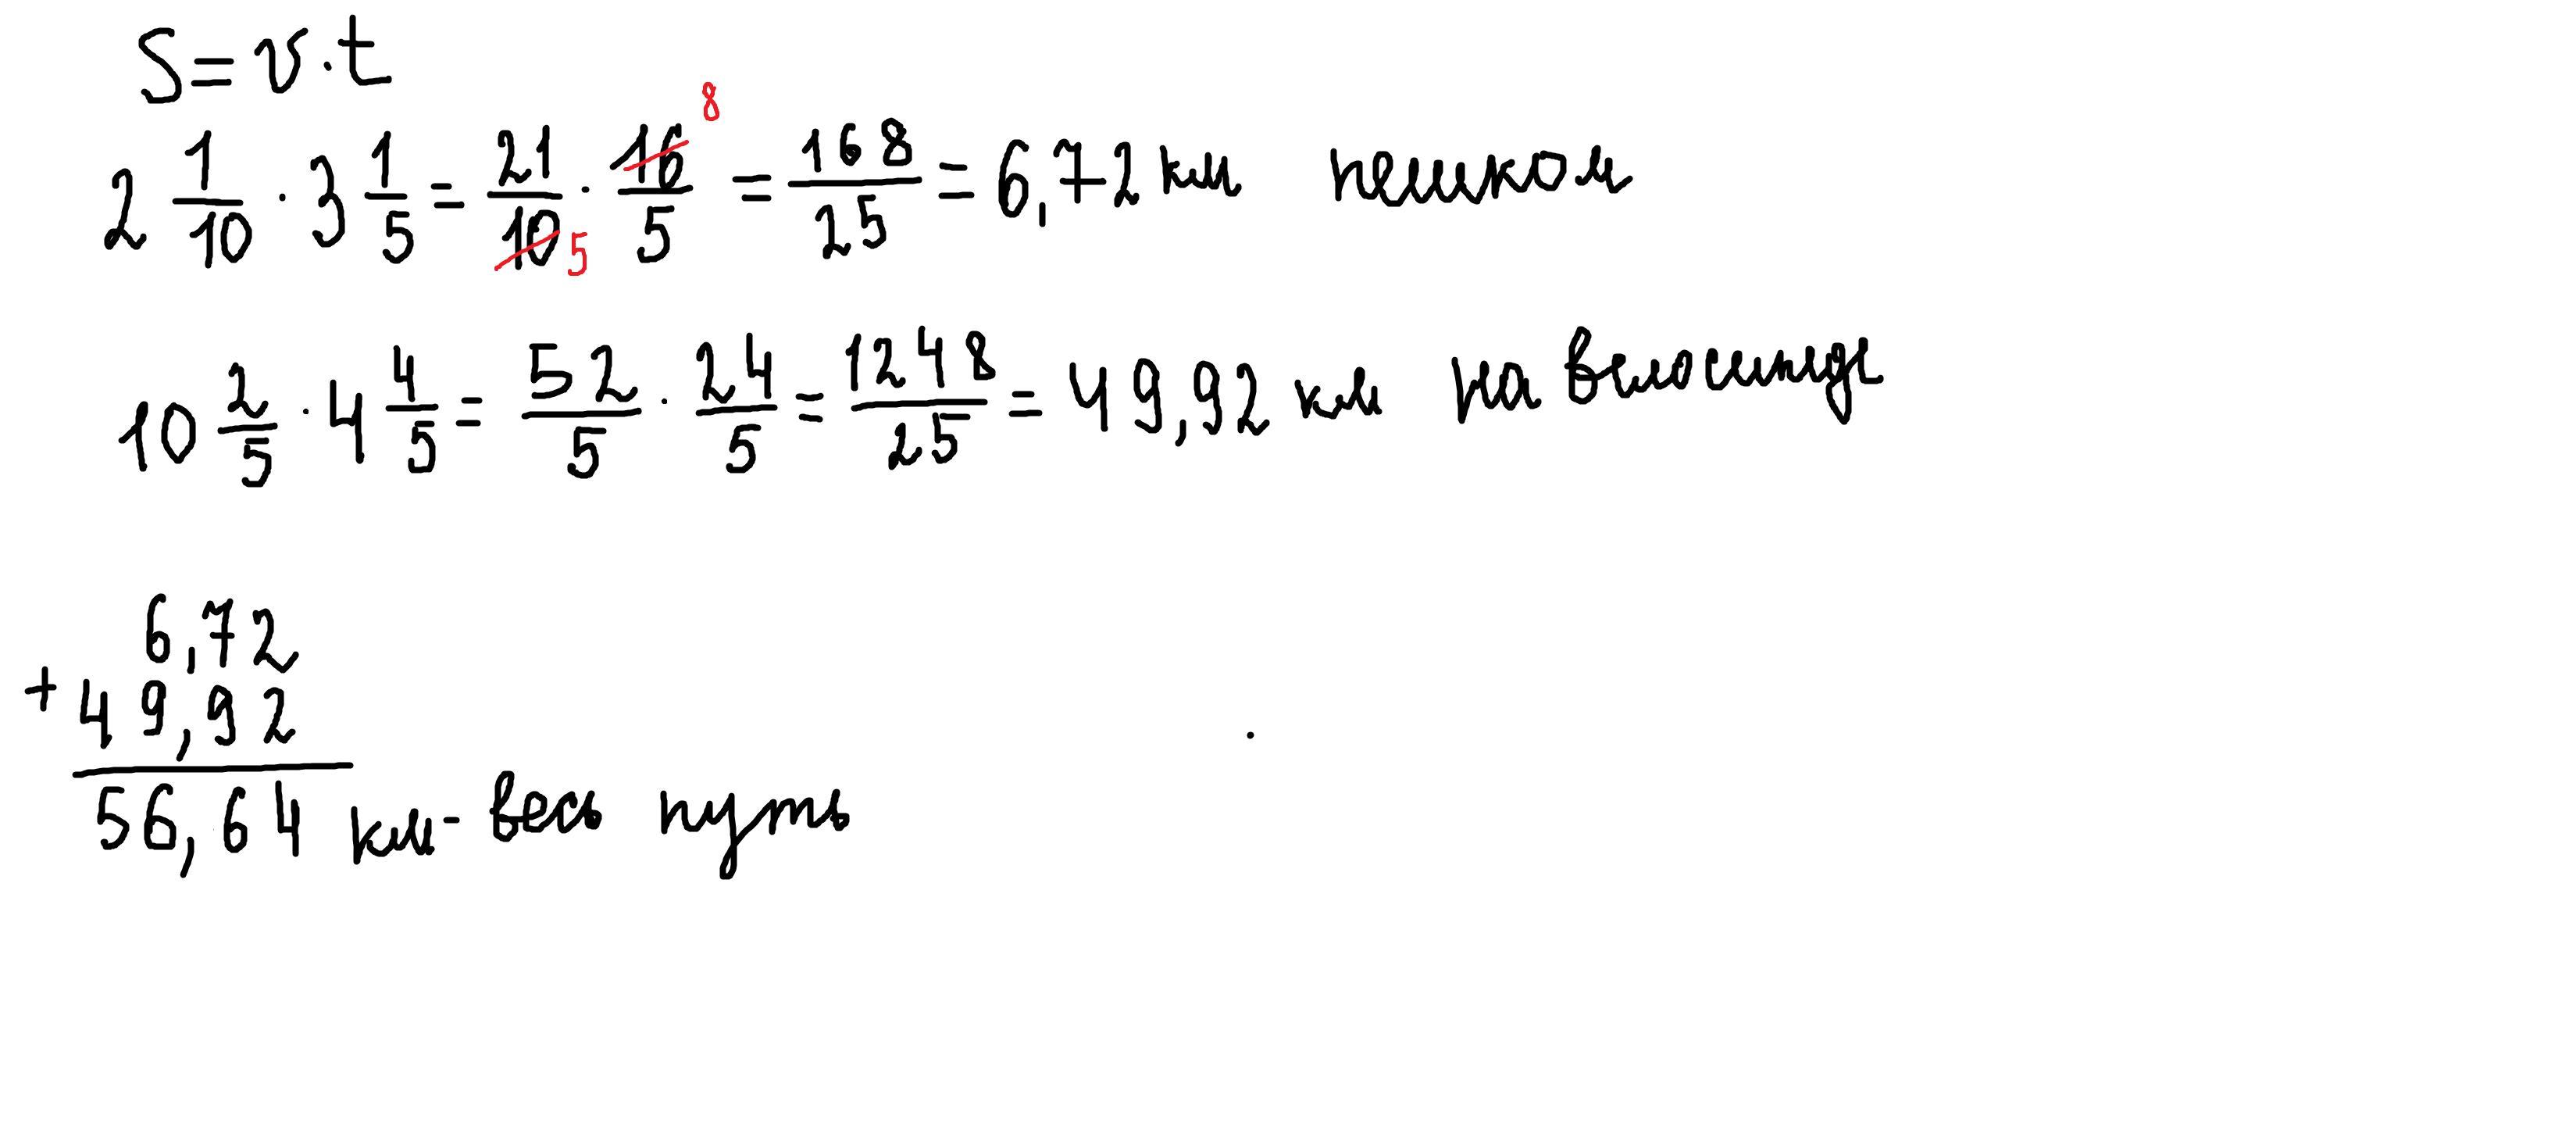 S = v · t
2 1/10 · 3 1/5 = 21/10 5 · 16/5 8 = 168/25 = 6,72 км пешком
10 2/5 · 4 4/5 = 52/5 · 24/5 = 1248/25 = 49,92 км на велосипеде
6,72
+ 49,92
56,64 км - весь путь